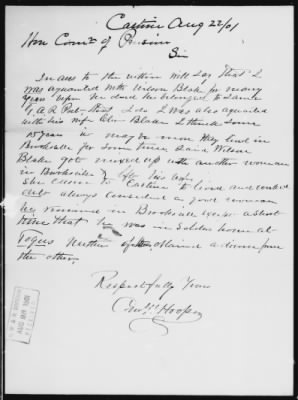 Castine Aug 22/01
Hon Comr of Pension
Sir
In ans to the within will say That I
was aquainted with Wilson Blake for many
years before he died he belonged to same
G A R Post that I do I was also aquainted
with his wife Blake I think some
15 years it may be more they lived in
Brooksville for some time said Wilson
Blake got mixed up with another woman
in Brooksville & left his wife
She came to Castine to live and worked
always considered a good woman
he remained in Brooksville except a short
time that he was in Soldier home at
Togus Neither of them obtained a divorce from
the other
Respectfully Yours
Hooper